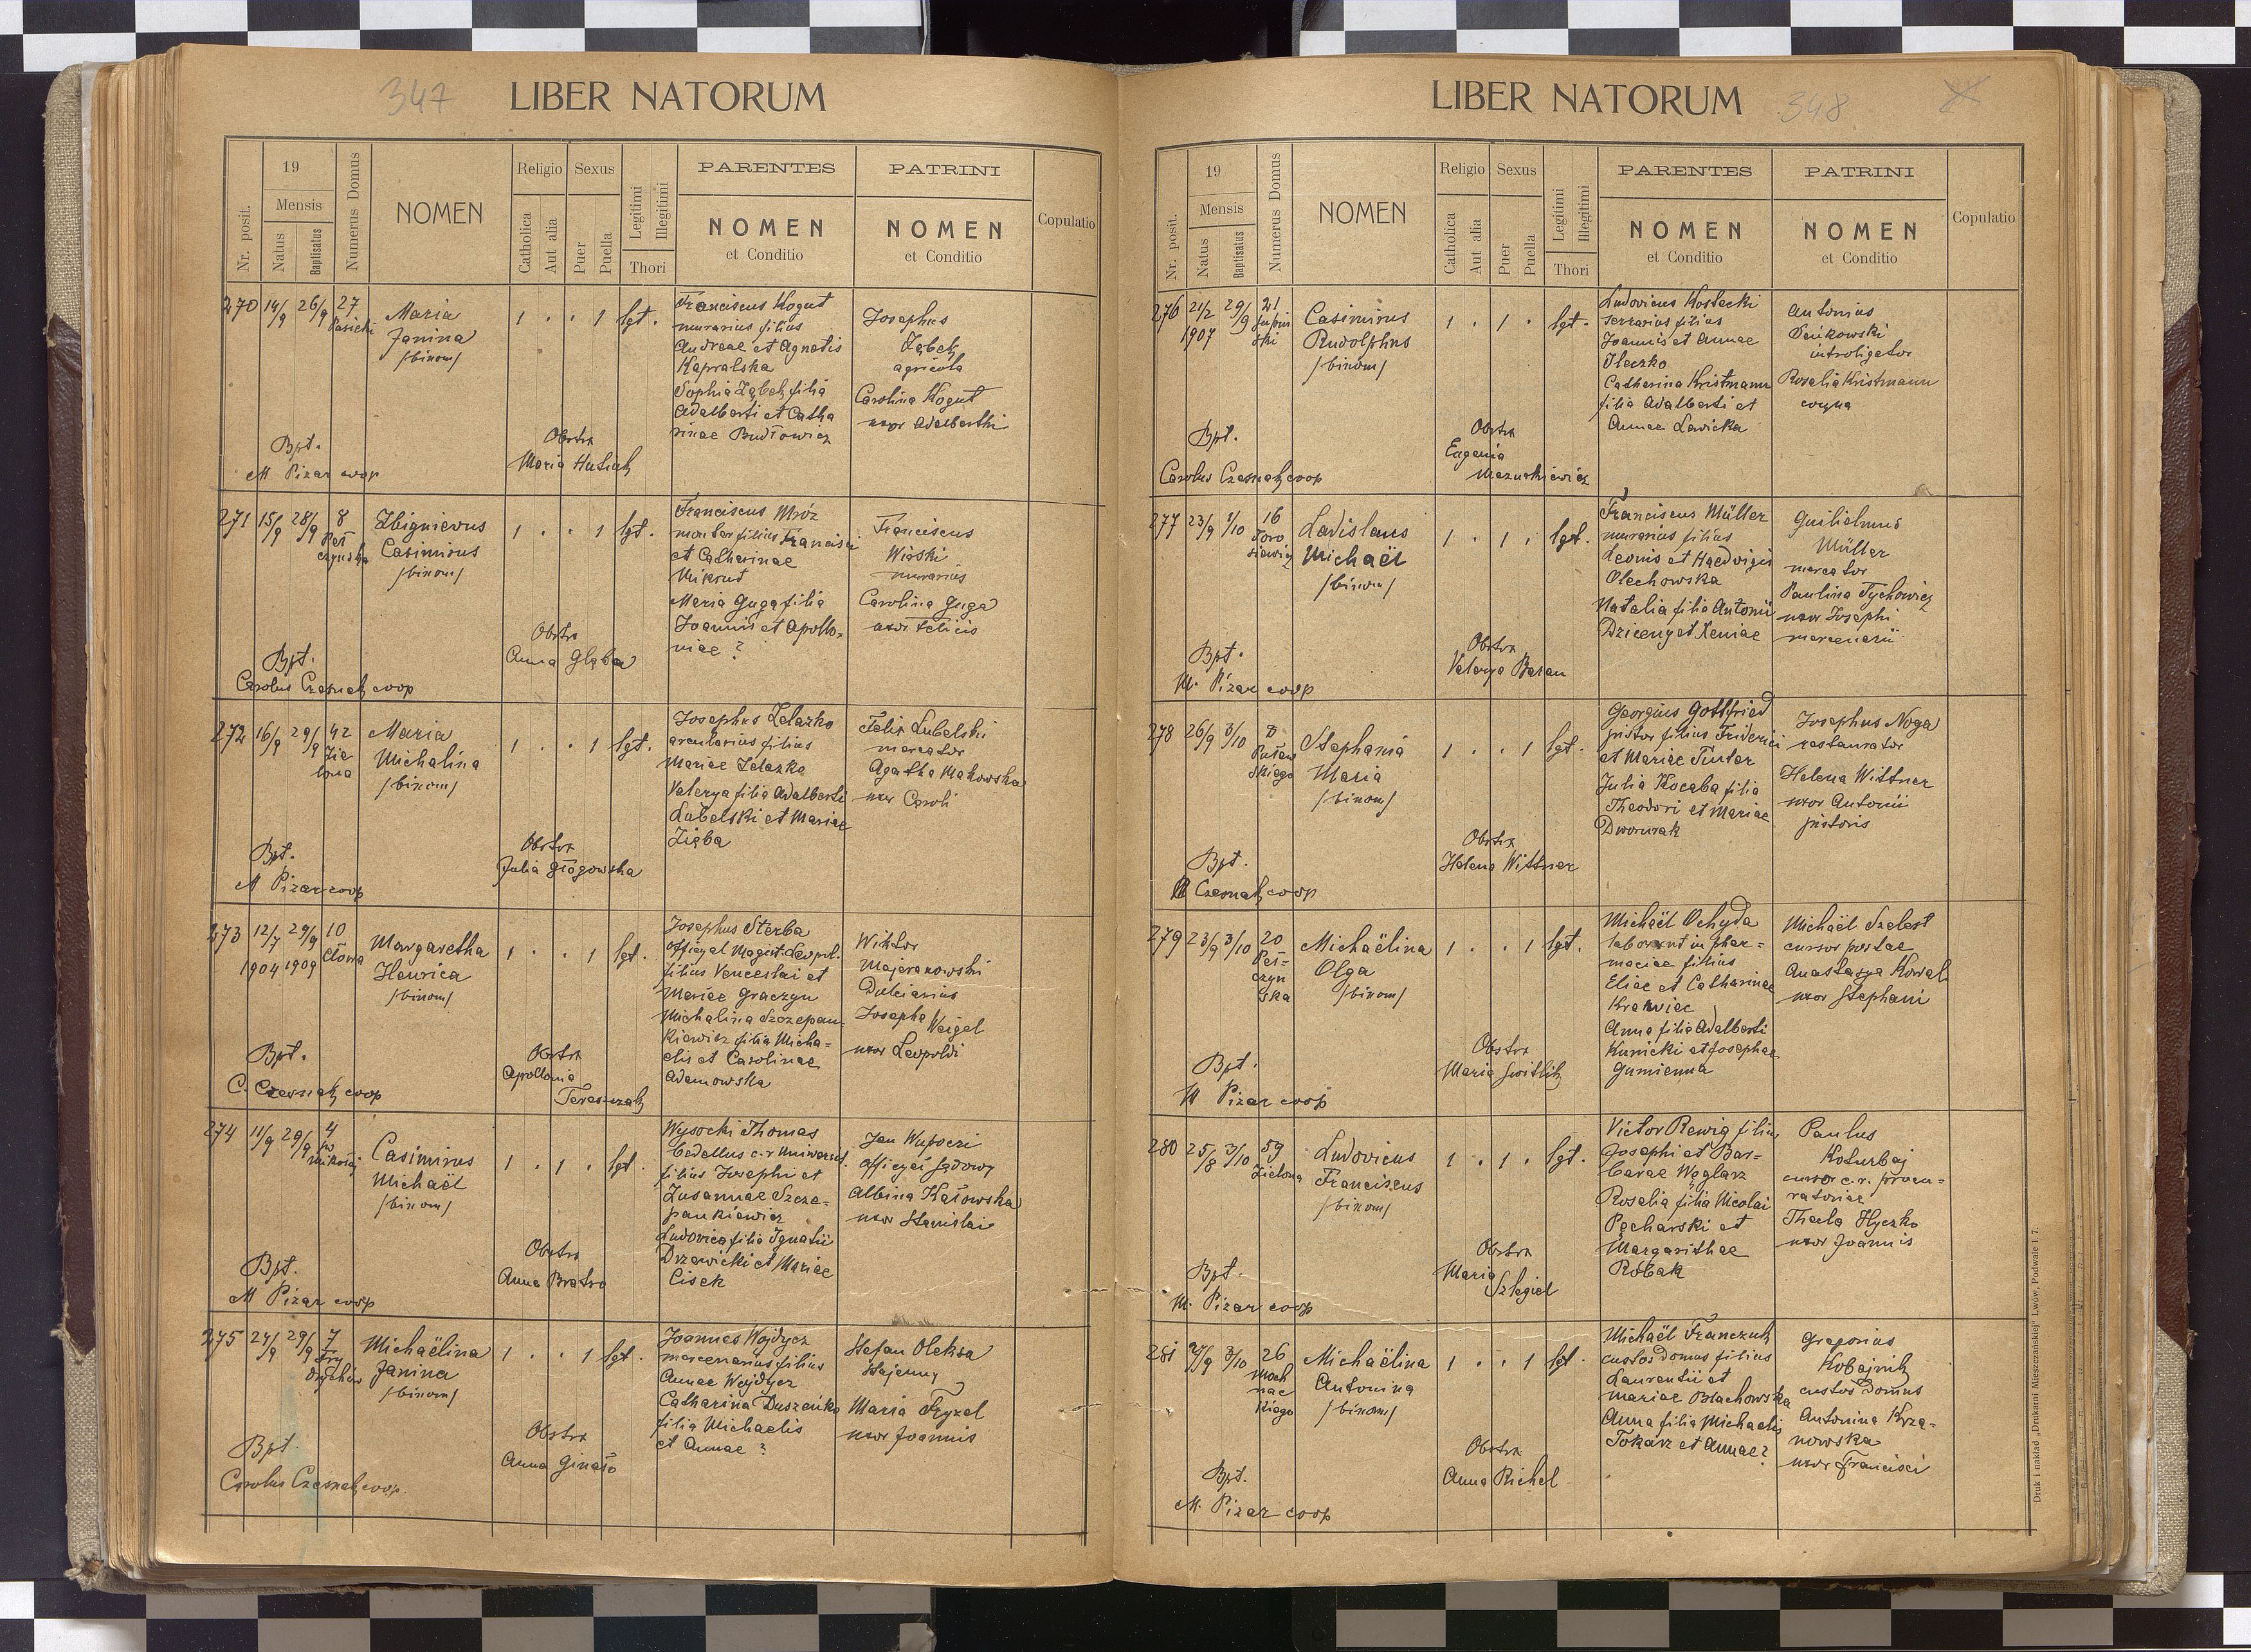 347
LIBER NATORUM
Nr. posit.
19
Mensis
Natus
Baptisatus
Numerus Domus
NOMEN
Religio
Catholica
Aut alia
Sexus
Puer
Puella
Legitimi
Illegitimi
Thori
PARENTES
NOMEN
et Conditio
PATRINI
NOMEN
et Conditio
Copulatio
270 14/9 26/9 27
Maria
Janina
/binom/
1 . . 1 lgt.
Franciscus Kogut
murarius filius
Andreae et Agnetis
Kapralska
Sophia Ząbek filia
Adalberti et Catha
rinae Budłowicz
Josephus
Ząbek
agricola
Carolina Kogut
uxor Adalberthi
Obstrx
Maria
Bpt.
M Pizar coop
271 15/9 28/9 8
Zbignievus
Casimirus
/binom/
1 . . 1 lgt.
Franciscus Mróz
filius Francisci
et Catharinae
Mikrut
Maria Guga filia
Joannis et Apollo-
niae ?
Franciscus
murarius
Carolina Guga
uxor Felicis
Obstrx
Anna
Bpt.
Carolus Czesnak coop
272 16/9 29/9 42
Zie
lona
Maria
Michalina
/binom/
1 . . 1 lgt.
Josephus Zelazko
arcularius filius
Mariae Zelazko
Valerya filia Adalberti
Lubelski et Mariae
Zięba
Felix Lubelski
mercator
Agatha Makowska
uxor Caroli
Obstrx
Julia Głogowska
Bpt.
M Pizar coop
273 12/7 29/9 10
1904 1909 Cłowa
Margaretha
Henrica
/binom/
1 . . 1 lgt.
Josephus Sterba
offizyal Magist. Leopol.
filius Venceslai et
Mariae Graczyn
Michalina Szczepan
kiewicz filia Micha-
elis et Carolinae
Adamowska
Wiktor
Majeranowski
Dulciarius
Josepha Weigel
uxor Leopoldi
Obstrx
Apollonia
Tereszczak
Bpt.
C. Czesnak coop
274 11/9 29/9 4
św
Mikołaj
Casimirus
Michaël
/binom/
1 . 1 . lgt.
Wysocki Thomas
bedellus c.r universit.
filius Josephi et
Zusannae Szcze-
pankiewicz
Ludovica filia Ignatii
Drzewicki et Mariae
Cisek
Jan
Albina Kałowska
uxor Stanislai
Obstrx
Anna Bratro
Bpt.
M Pizar coop
275 24/9 29/9 7
Michaëlina
Janina
/binom/
1 . . 1 lgt.
Joannes Wojdycz
mercenarius filius
Annae Wojdycz
Catharina Duszeńko
filia Michaelis
et Annae ?
Stefan Oleksa
Stajenny
Maria Fryzel
uxor Joannis
Obstrx
Anna
Bpt.
Carolus Czesnak coop.
348
LIBER NATORUM
Nr. posit.
19
Mensis
Natus
Baptisatus
Numerus Domus
NOMEN
Religio
Catholica
Aut alia
Sexus
Puer
Puella
Legitimi
Illegitimi
Thori
PARENTES
NOMEN
et Conditio
PATRINI
NOMEN
et Conditio
Copulatio
276 21/2 29/9 21
1907
Casimirus
Rudolphus
/binom/
1 . 1 . lgt.
Ludovicus Kostecki
serrarius filius
Joannis et Annae
Ileczko
Catharina Kristmann
filia Adalberti et
Annae Lewicka
Antonius
Seńkowski
introligator
Rosalia Kristmann
Obstrx
Eugenia
Mazurkiewicz
Bpt.
Carolus Czesnak coop
277 23/9 1/10 16
Toro
siewicz
Ladislaus
Michaël
/binom/
1 . 1 . lgt.
Franciscus Müller
murarius filius
Leonis et Haedvigis
Olechowska
Natalia filia Antonii
et Xeniae
Guilielmus
Müller
mercator
Paulina Tychowicz
uxor Josephi
mercenarii
Obstrx
Valerya Baran
Bpt.
M. Pizar coop
278 26/9 3/10
Stephania
Maria
/binom/
1 . . 1 lgt.
Georgius Gottfried
pistor filius Friderici
et Mariae Tinter
Julia Kocaba filia
Theodori et Mariae
Josephus Noga
restaurator
Helena Wittner
uxor Antonii
pistoris
Obstrx
Helena Wittner
Bpt.
Czesnak coop
279 23/9 3/10 20
Peł-
czyń
ska
Michaëlina
Olga
/binom/
1 . . 1 lgt.
Michaël Ochyda
laborant in phar-
maciae filius
Eliae et Catharinae
Krawiec
Anna filia Adalberti
Kunicki et Josephae
Gumienna
Michaël Szelest
cursor postae
Anastasya Kowal
uxor Stephani
Obstrx
Maria
Bpt.
M Pizar coop
280 25/8 3/10 59
Zielona
Ludovicus
Franciscus
/binom/
1 . 1 . lgt.
Victor Rewig filius
Josephi et Bar-
barae Węglarz
Rosalia filia Nicolai
Pęcharski et
Margarithae
Robak
Paulus
Koturbaj
cursor c.r. procu-
ratoriae
Thecla Hyczko
uxor Joannis
Obstrx
Maria
Szlegiel
Bpt.
M. Pizar coop
281 27/9 3/10 26
Moch
nac
kiego
Michaëlina
Antonina
/binom/
1 . . 1 lgt.
Michaël Franczuk
custos domus filius
Laurentii et
Mariae Blachowska
Anna filia Michaelis
Tokarz et Annae ?
Gregorius
Kobajnik
custos domus
Antonina Krza-
nowska
uxor Francisci
Obstrx
Anna Richel
Bpt.
M. Pizar coop
Druk i nakład „Drukarni Mieszczańskiej" Lwów, Podwale l. 7.